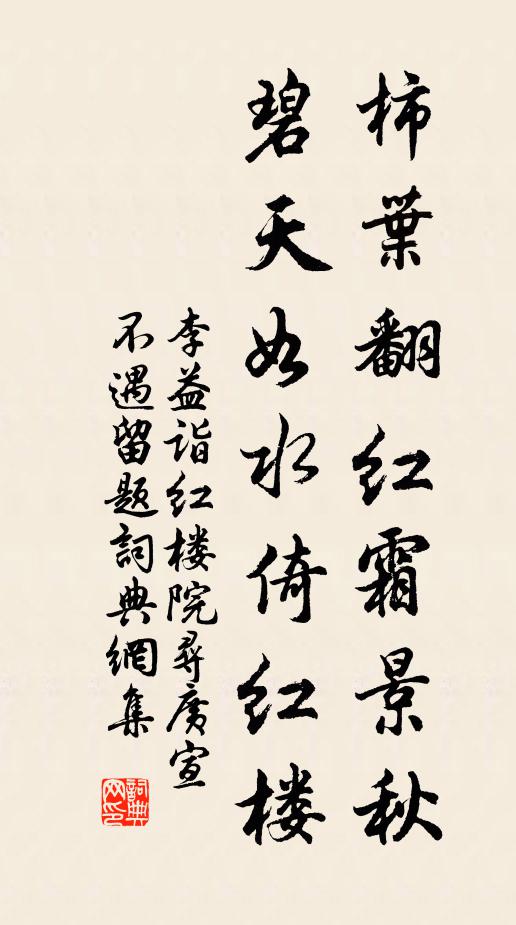 柿葉翻红霜景秋
碧天如水倚红楼
李益诣红楼院寻廣宣
不遇留题詞典網集
詞典网印